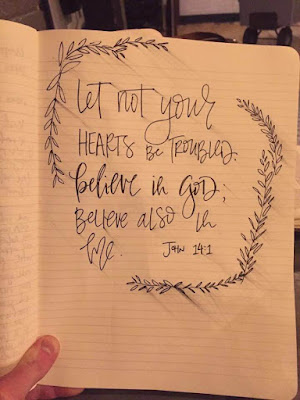 Let not your
HEARTS Be TROUBLED.
believe in GOD;
Believe also in
me.
JOHN 14:1